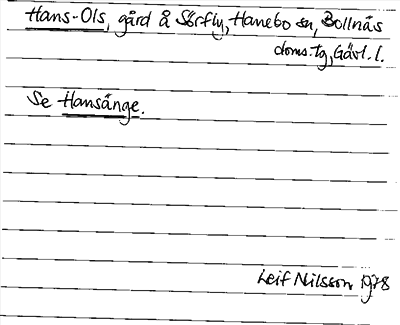 Hans-Ols, gård å Sörfly, Hanebo sn, Bollnäs
doms.tg, Gävl. l.
Se Hansänge.
Leif Nilsson 1978